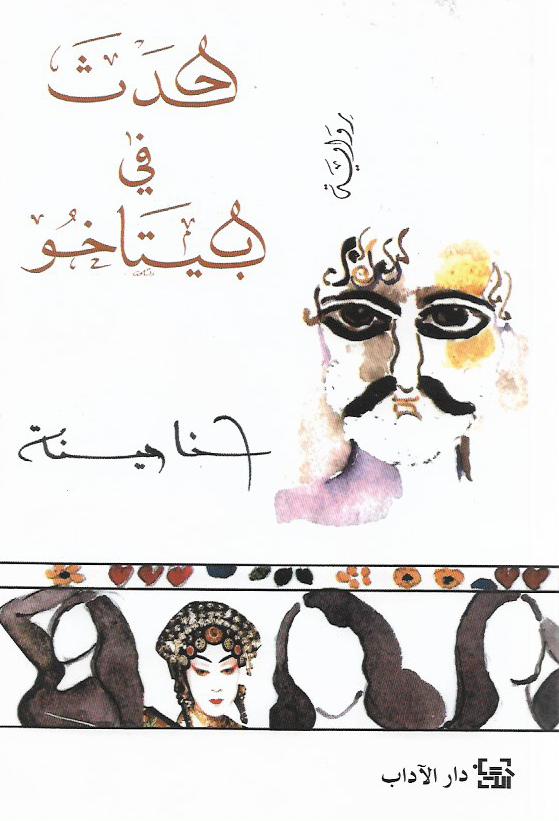 حَدَثَ
في
بيتَاخُو
رِوَاية
حنا مينة
دار الآداب